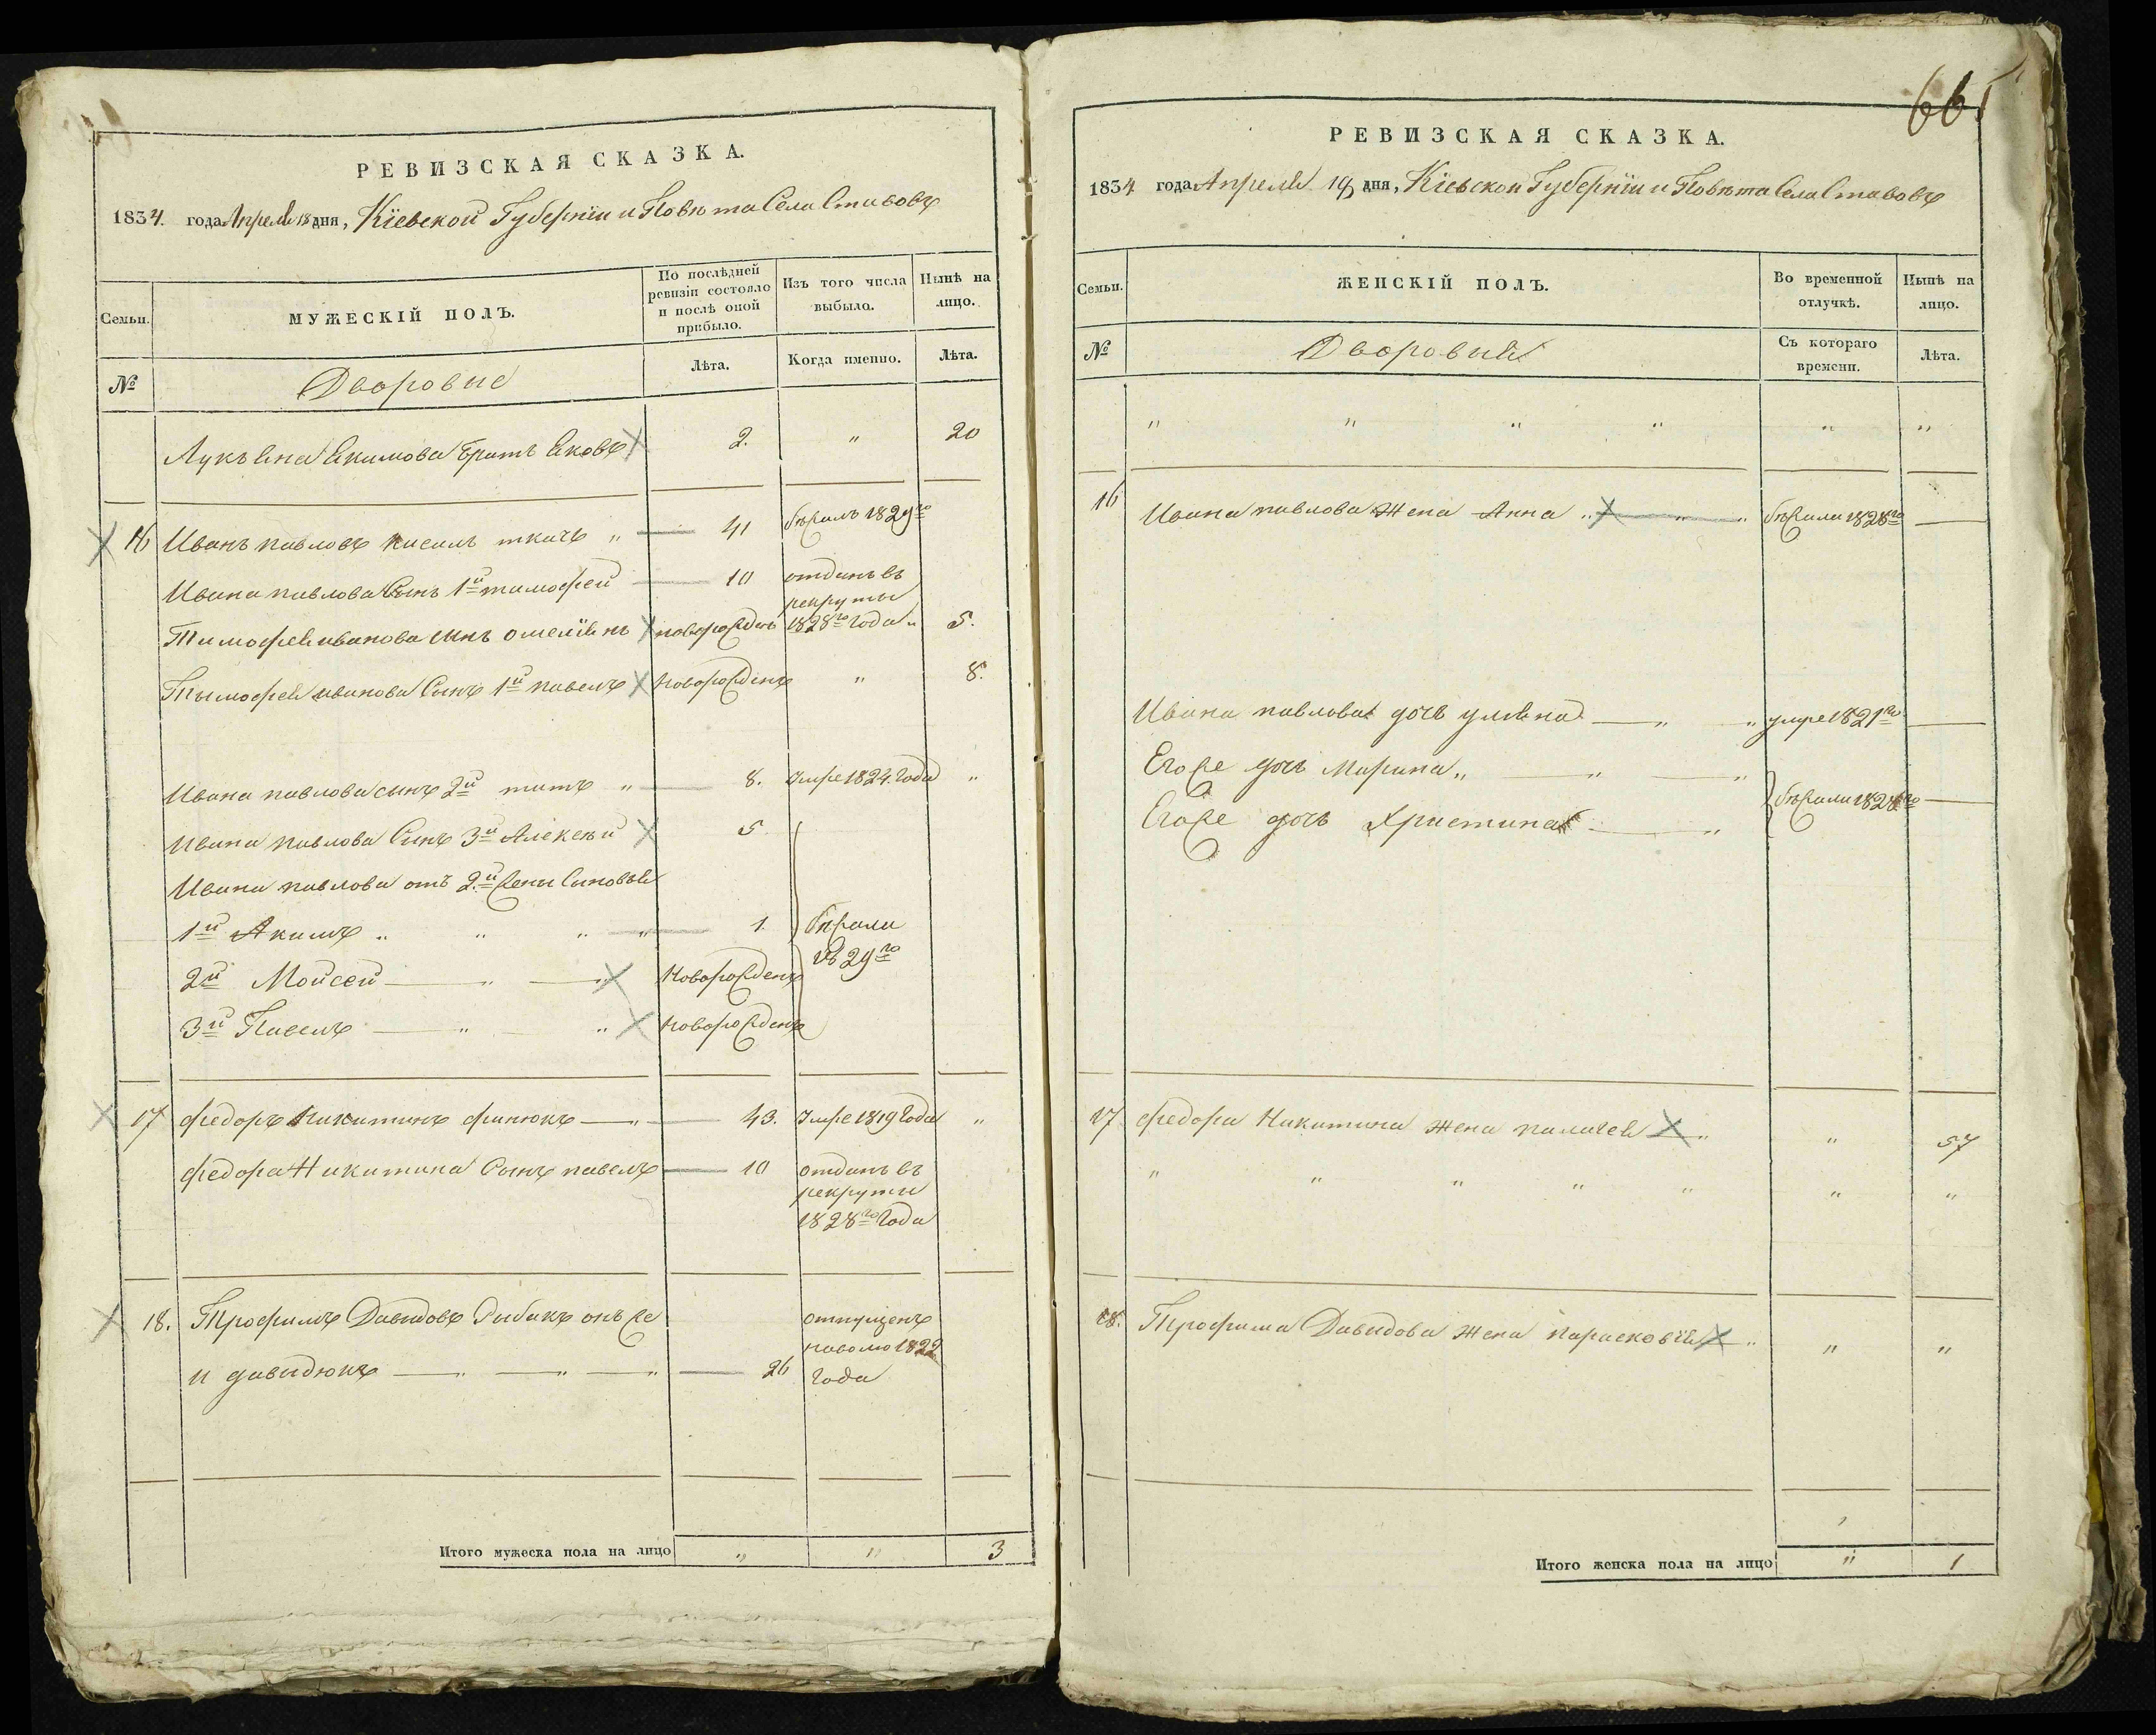 РЕВИЗСКАЯ СКАЗКА.
1834. года Апреля 18 дня, Кіевской Губерніи и Повѣта Села Ставовъ
Семьи.
МУЖЕСКІЙ ПОЛЪ.
По послѣдней ревизіи состояло и послѣ оной прибыло.
Изъ того числа выбыло.
Нынѣ на лицо.
№
Дворовые
Лѣта.
Когда именно.
Лѣта.
Лукъяна Екимова братъ Яковъ 2. " 20
16 Иванъ павловъ кисиль ткачъ " 41 бѣжалъ 1829го
Ивана павлова Сынъ 1й тимофей 10 отданъ въ
рекруты
Тимофея иванова сынъ омелянъ новорожденъ 1828го Года " 5.
Тымофея иванова Сынъ 1й павелъ новорожденъ " 8.
Ивана павлова сынъ 2й титъ " 8. умре 1824. Года "
Ивана павлова Сынъ 3й Алексѣй 5
Ивана павлова отъ 2й жены Сыновья
1й Акимъ " " " " 1. бѣжали
въ 29го
2й Мойсей " " новорожденъ
3й Павелъ " " новорожденъ
17 федоръ Никитинъ финюкъ " 43. умре 1819 Года "
федора Никитина Сынъ павелъ 10 отданъ въ
рекруты
1828го Года
18. Трофимъ Давыдовъ Рыбакъ онъ же отпущенъ
1822
и давыдюкъ " " " 26 Года
Итого мужеска пола на лицо " " 3
661
РЕВИЗСКАЯ СКАЗКА.
1834 года Апреля 19 дня, Кіевской Губерніи и Повѣта Села Ставовъ
Семьи.
ЖЕНСКІЙ ПОЛЪ.
Во временной отлучкѣ.
Нынѣ на лицо.
№
Дворовыя
Съ котораго времени.
Лѣта.
" " " " " "
16 Ивана павлова Жена Анна " " " бѣжала 1828го
Ивана павлова дочь уляна " " умре 1821го
Егоже дочь Марина " " "
бѣжали 1828го
Егоже дочь Христина "
17 федора Никитина Жена палагея " " 57
" " " " " " "
18. Трофима Давыдова Жена параскович " " "
Итого женска пола на лицо " 1